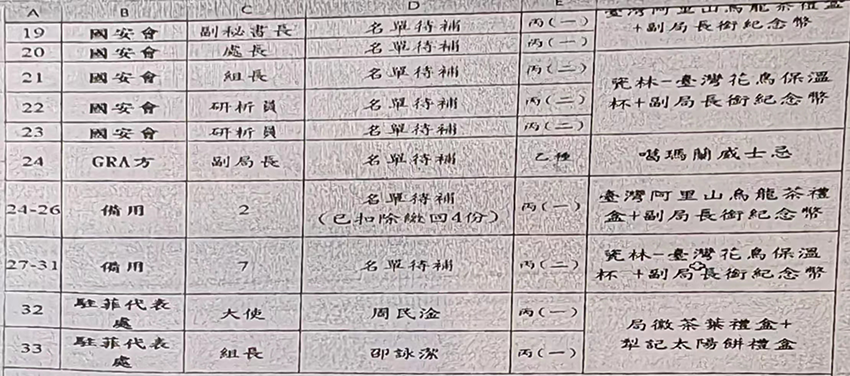 A B C D E
臺灣阿里山烏龍茶禮盒
19 國安會 副秘書長 名單待補 丙(一) +副局長銜紀念幣
20 國安會 處長 名單待補 丙(一)
21 國安會 組長 名單待補 丙(二)
瓷林-臺灣花鳥保溫
22 國安會 研析員 名單待補 丙(二) 杯+副局長銜紀念幣
23 國安會 研析員 名單待補 丙(二)
24 GRA方 副局長 名單待補 乙種 噶瑪蘭威士忌
24-26 備用 2 名單待補 丙(一) 臺灣阿里山烏龍茶禮
(已扣除繳回4份) 盒+副局長銜紀念幣
27-31 備用 7 名單待補 丙(二) 瓷林-臺灣花鳥保溫
杯+副局長銜紀念幣
32 駐菲代表 大使 周民淦 丙(一)
處 局徽茶葉禮盒+
33 駐菲代表 組長 邵詠潔 丙(一) 犁記太陽餅禮盒
處